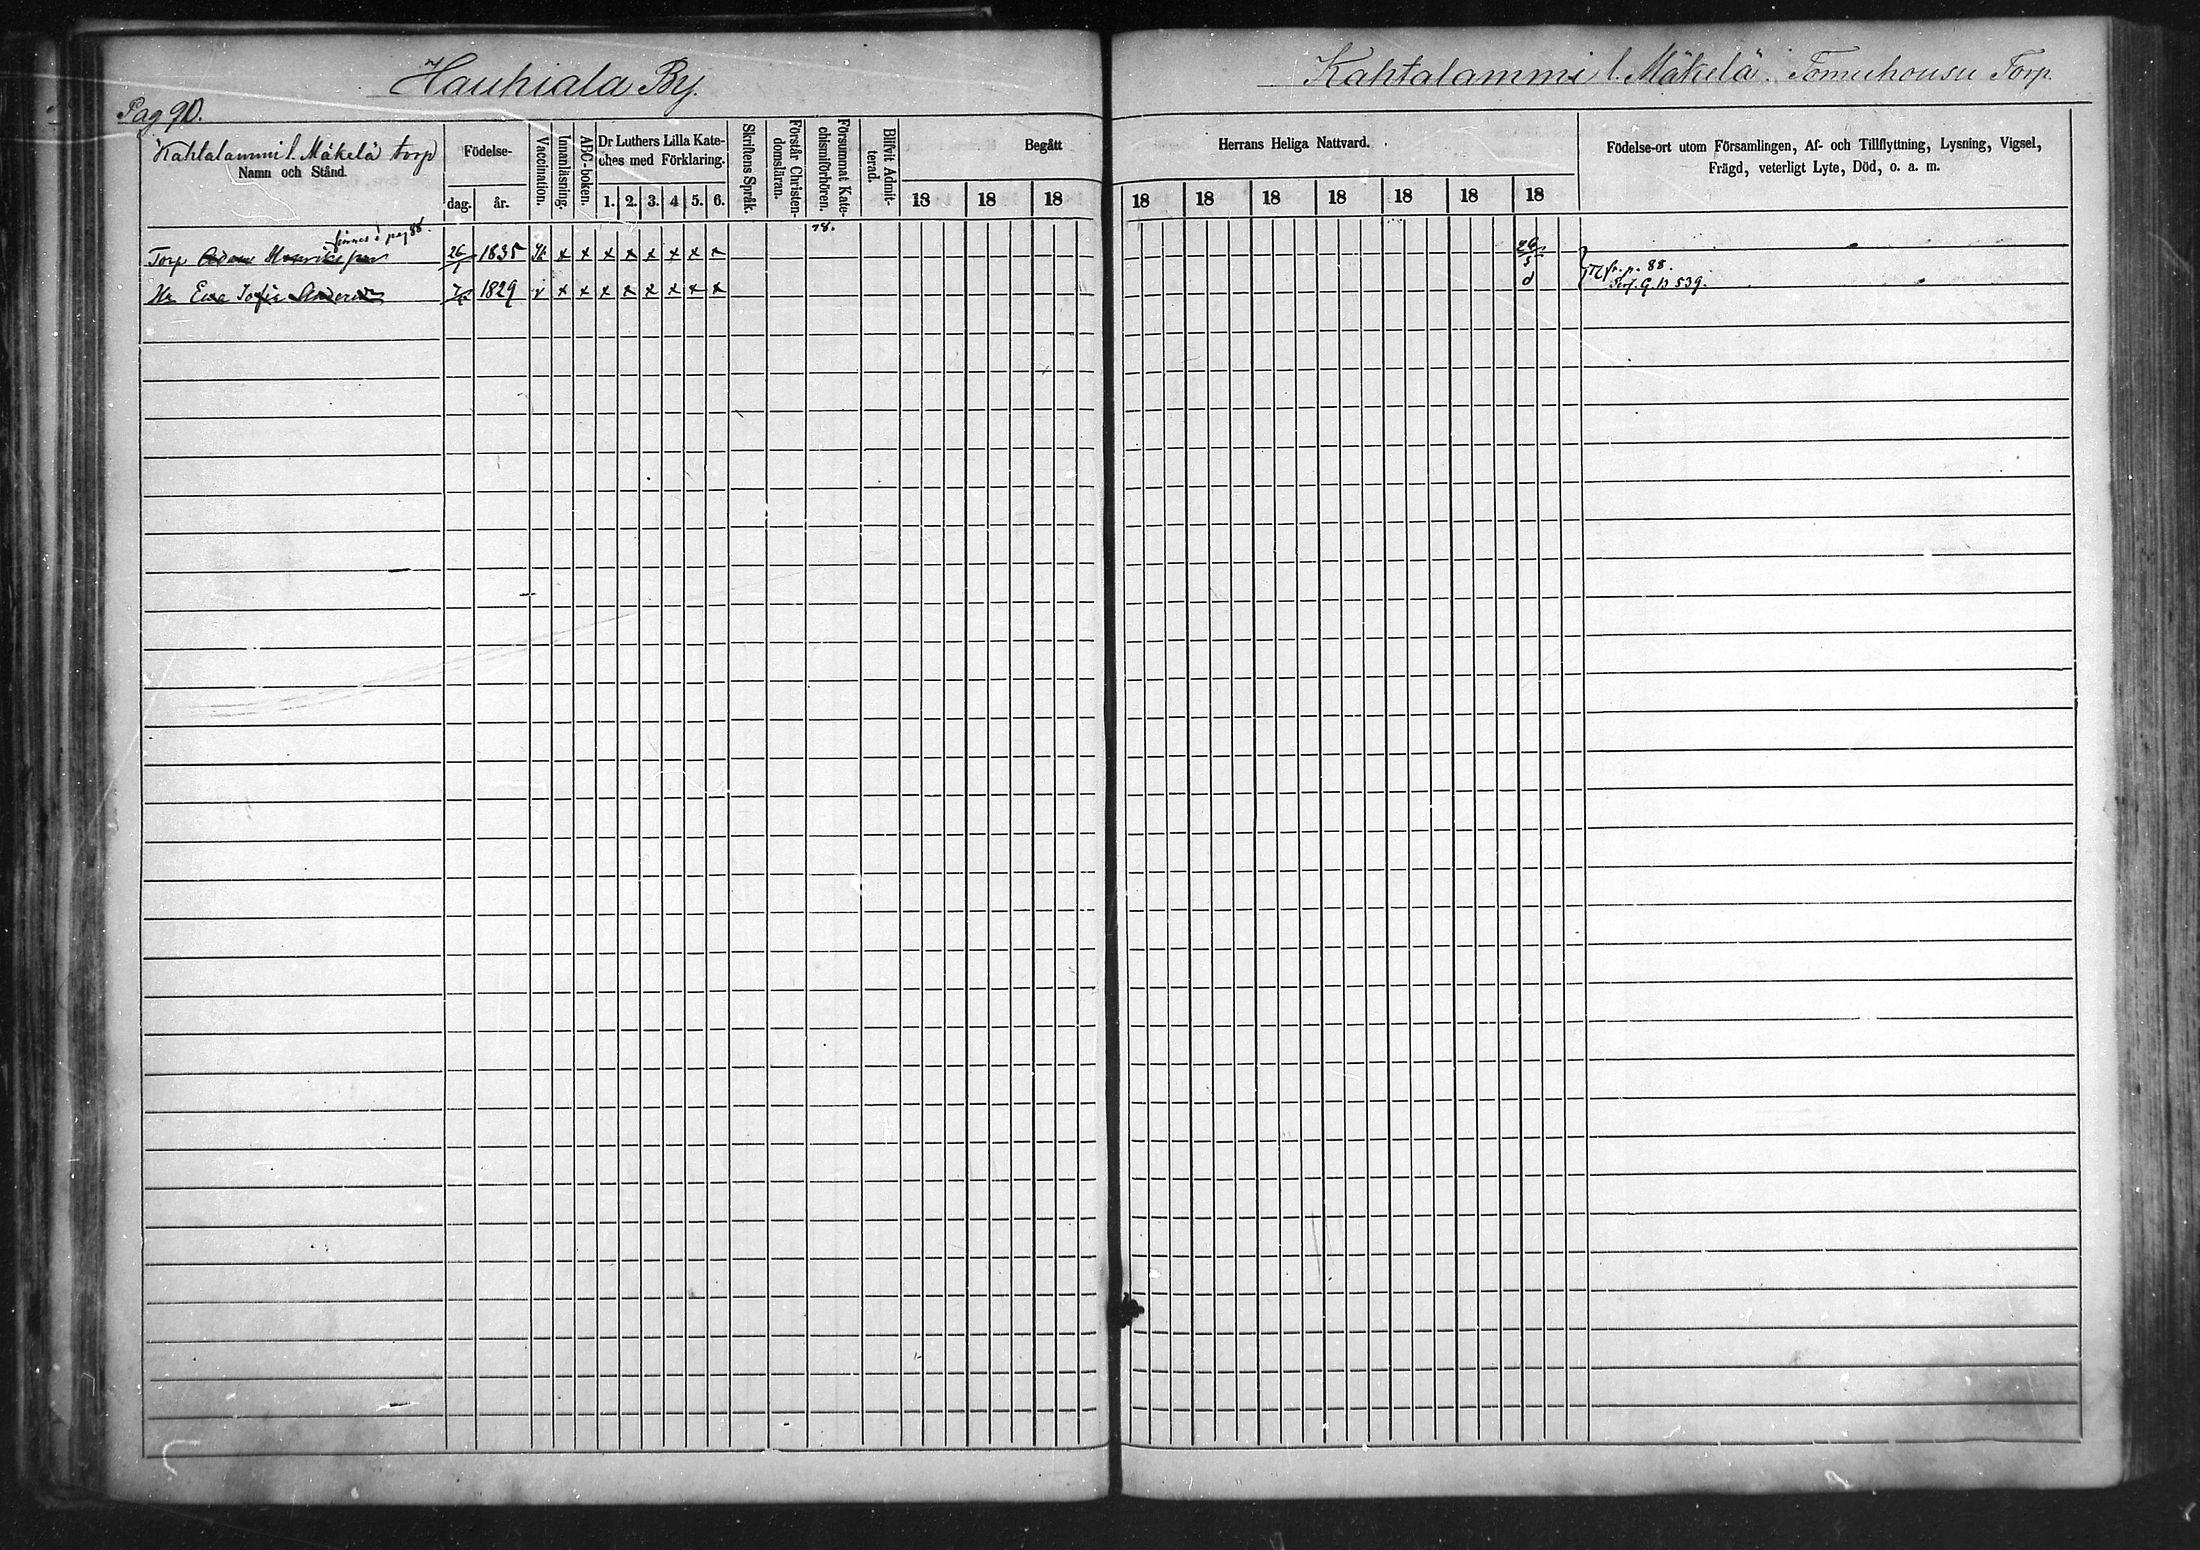 Hauhiala By.
Kahtalammi l. Mäkelä Torp.
Pag 90.
Kahtalammi l. Mäkelä torp
Namn och Stånd.
Födelse-
dag. år.
Vaccination.
Innanläsning.
ABC-boken.
Dr Luthers Lilla Kate-
ches med Förklaring.
1. 2. 3. 4 5. 6.
Skriftens Språk.
Förstår Christen-
domsläran.
Försummat Kate-
chismiförhören.
Blifvit Admit-
terad.
Begått
18 18 18
Herrans Heliga Nattvard.
18 18 18 18 18 18 18
Födelse-ort utom Församlingen, Af- och Tillflyttning, Lysning, Vigsel,
Frägd, veterligt Lyte, Död, o. a. m.
78.
finnes i pag 88.
Torp Adam Henriksson 26/1 1835 x x x x x x x x 26/5
Hu Ewa Sofia 1829 v x x x x x x x x d
fr. p. 88.
G. B 539.